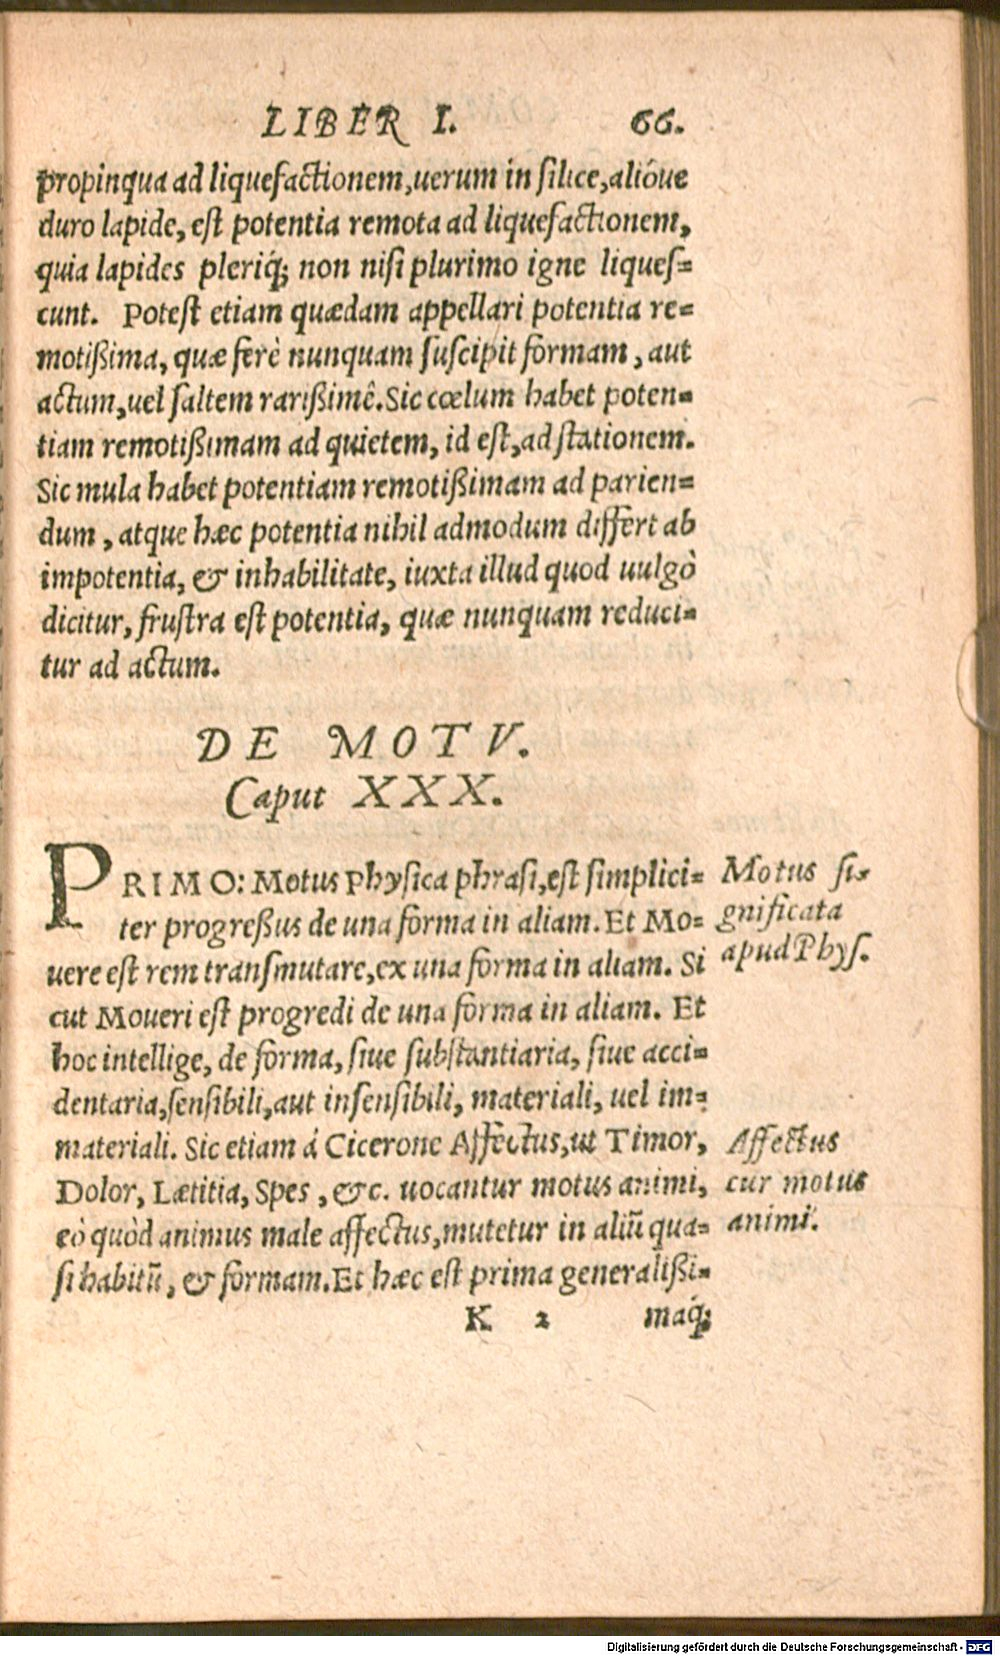 LIBER I. 66.
propinqua ad liquefactionem, uerum in silice, alióue
duro lapide, est potentia remota ad liquefactionem,
quia lapides pleriq́; non nisi plurimo igne liques=
cunt. Potest etiam quædam appellari potentia re=
motißima, quæ ferè nunquam suscipit formam, aut
actum, uel saltem rarißimê. Sic cœlum habet poten=
tiam remotißimam ad quietem, id est, ad stationem.
Sic mula habet potentiam remotißimam ad parien=
dum, atque hæc potentia nihil admodum differt ab
impotentia, & inhabilitate, iuxta illud quod uulgò
dicitur, frustra est potentia, quæ nunquam reduci=
tur ad actum.
DE MOTV.
Caput XXX.
PRIMO: Motus Physica phrasi, est simplici=
ter progreßus de una forma in aliam. Et Mo=
uere est rem transmutare, ex una forma in aliam. Si
cut Moueri est progredi de una forma in aliam. Et
hoc intellige, de forma, siue substantiaria, siue acci=
dentaria, sensibili, aut insensibili, materiali, uel im=
materiali. Sic etiam á Cicerone Affectus, ut Timor,
Dolor, Lætitia, Spes, &c. uocantur motus animi,
eò quòd animus male affectus, mutetur in aliũ qua=
si habitũ, & formam. Et hæc est prima generalißi=
K 2 maq́;
Motus si=
gnificata
apud Phys.
Affectus
cur motus
animi.
Digitalisierung gefördert durch die Deutsche Forschungsgemeinschaft - DFG